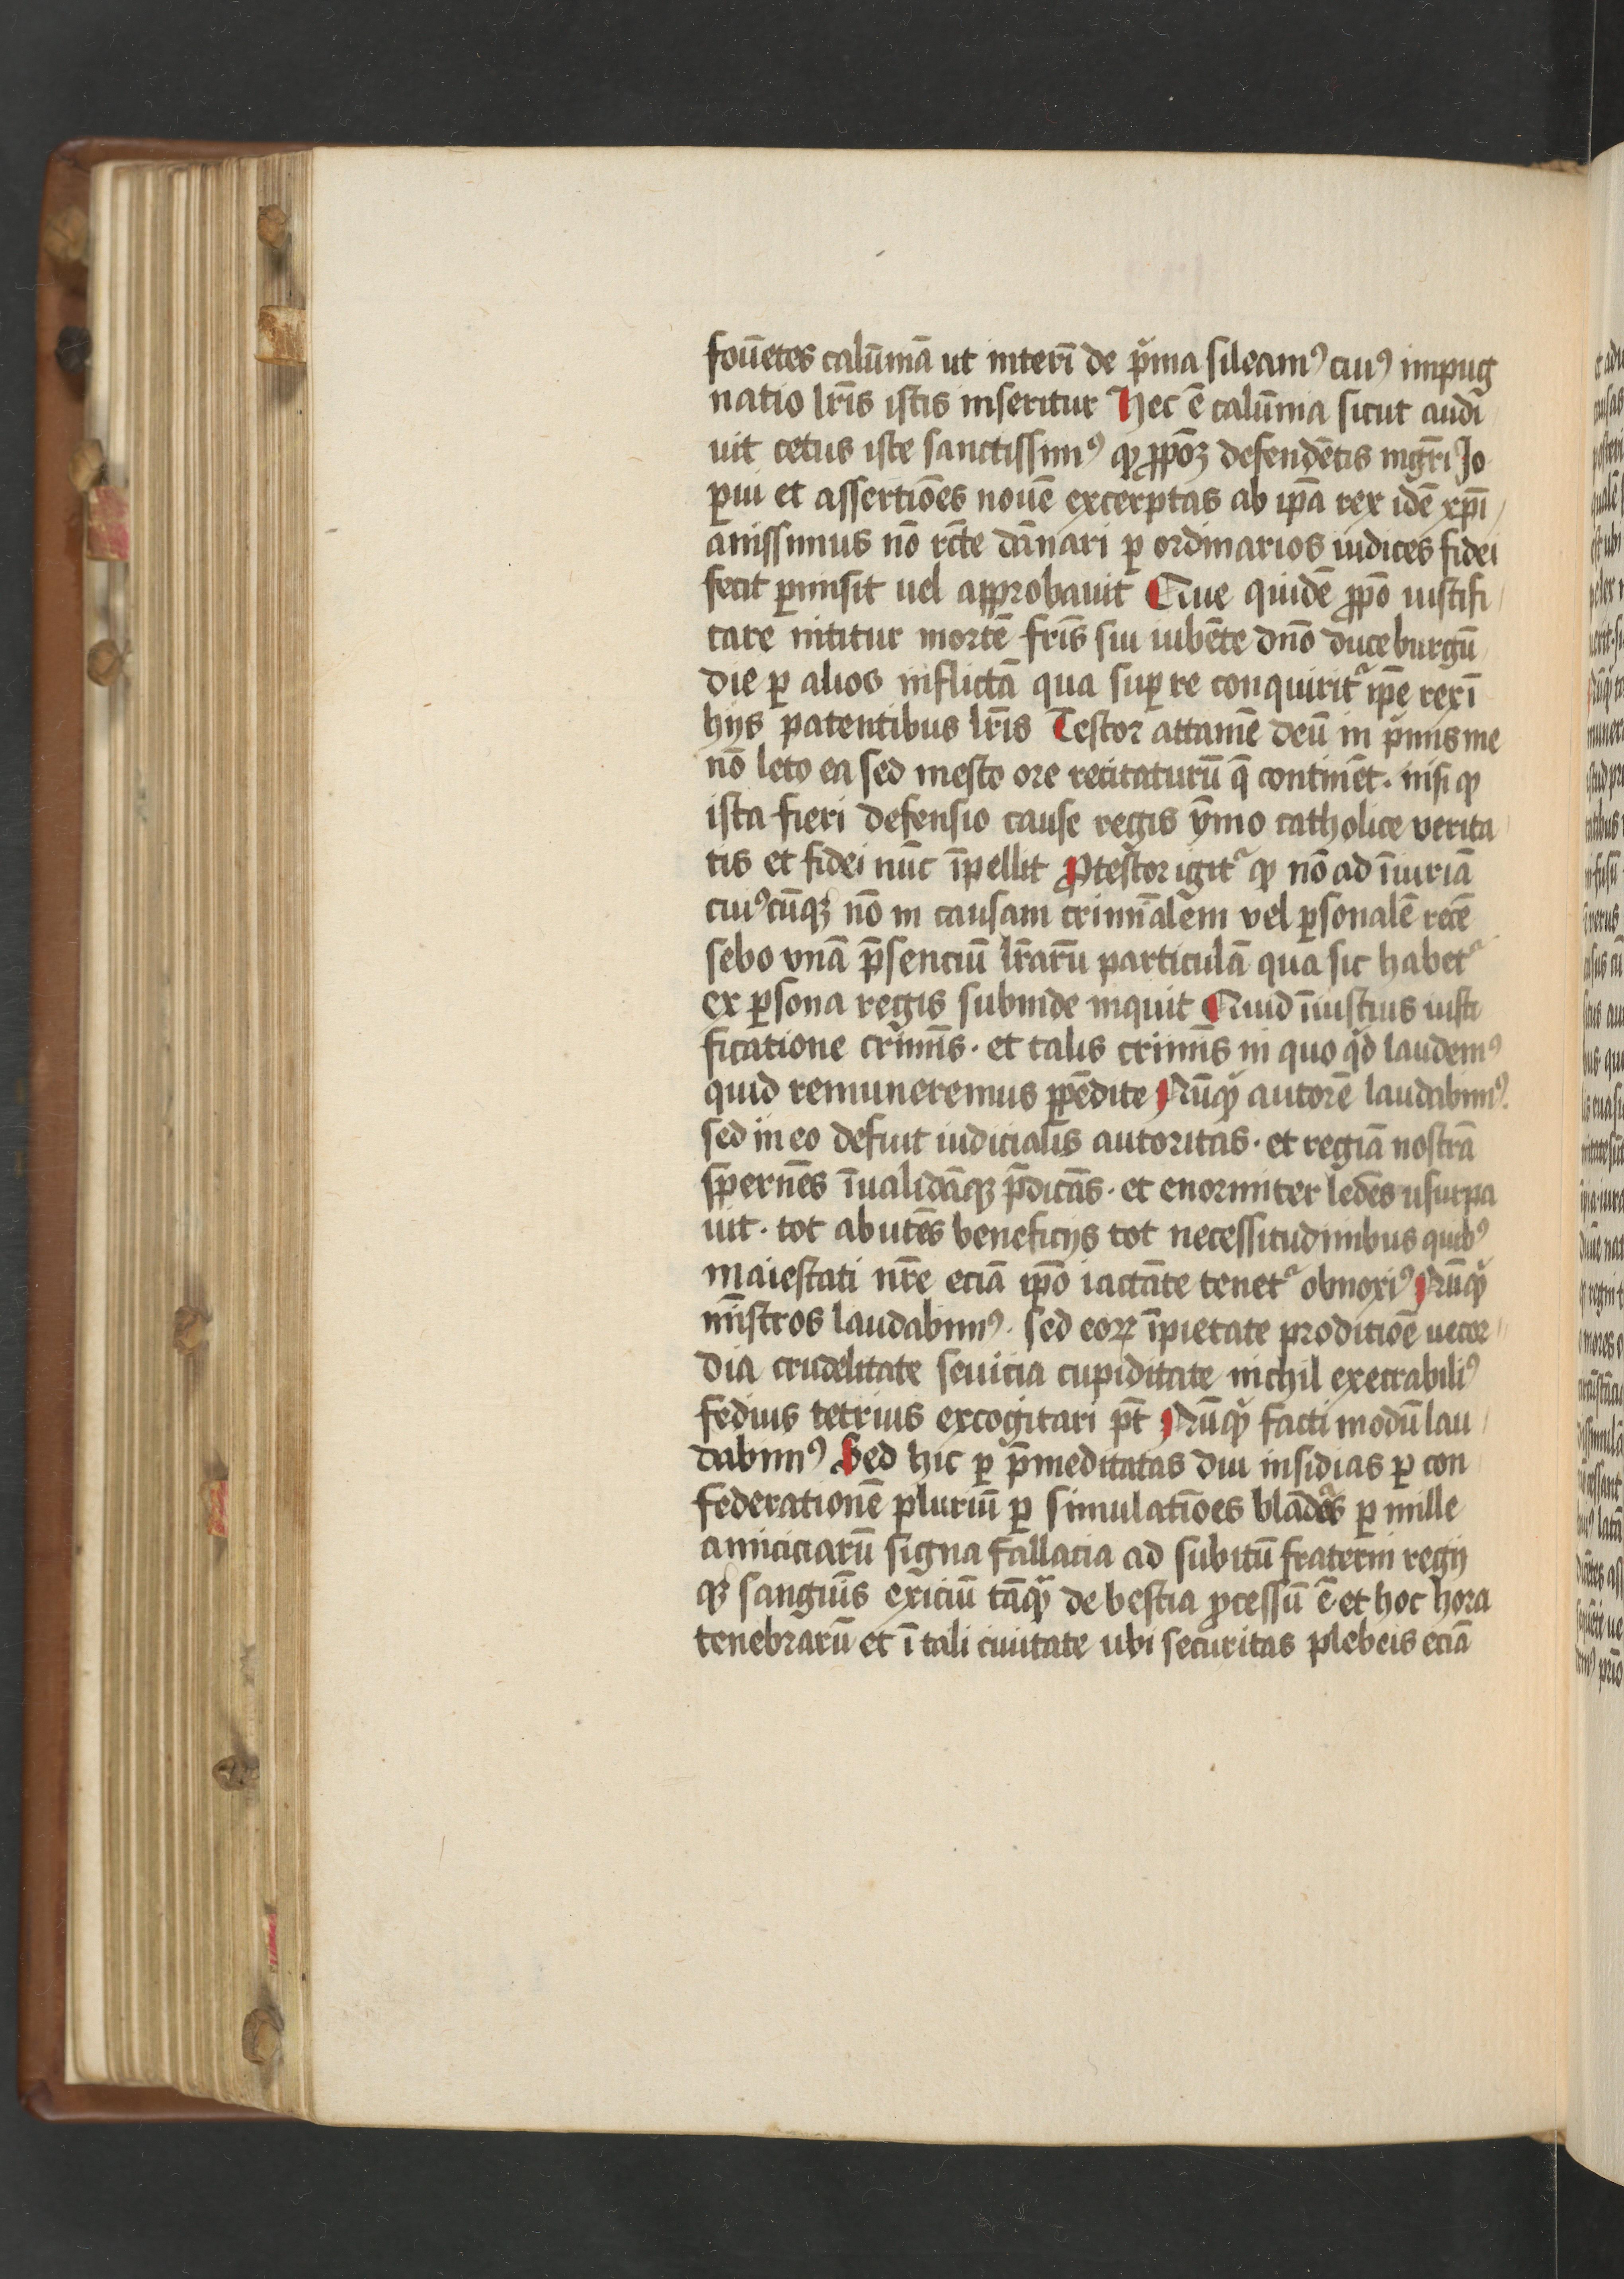 fouētes calūniā ut interī de pͥma sileamꝰ cuiꝰ impug
natio lr̄is istis inseritur Hec ē calūnia sicut audi
uit cetus iste sanctissimꝰ ꝙ ꝓpōꝫ defendētis mgr̄i Jo
ꝑui et assertiōes nouē excerptas ab ip̄a rex idē xp̄i
anissimus nō rc̄te dānari ꝑ ordinarios iudices fidei
fecit ꝑmisit uel approbauit Que quidē ꝓpō iustifi
care nititur mortē fr̄is sui iubēte dn̄o duce burgū
die ꝑ alios inflictā qua suꝑ re conquiritᷣ ip̄e rex ī
hijs patentibus lr̄is Testor attamē deū in pͥmis me
nō leto ea sed mesto ore recitaturū q̄ continēt · nisi ꝙ
ista fieri defensio cause regis ȳmo catholice verita
tis et fidei nūc īpellit Ꝓtestor igitᷣ ꝙ nō ad īiuriā
cuiꝰcūqꝫ nō in causam criminalem vel ꝑsonalē recē
sebo vnā p̄senciū lr̄arū particulā qua sic habetᷣ
ex ꝑsona regis subinde inquit Quid īiustius iusti
ficatione crimīs · et talis crimīs in quo qͥd laudemꝰ
quid remuneremus ꝑpēdite Nūqͥ autorē laudabimꝰ.
sed in eo defuit iudicialis autoritas · et regiā nostrā
spernēs īualidāqꝫ p̄dicās · et enormiter ledēs usurpa
uit · tot abutēs beneficijs tot necessitudinibus quibꝰ
maiestati nr̄e eciā ip̄o iactāte tenetᷣ obnoxiꝰ Nūqͥ
mīstros laudabimꝰ · sed eoꝝ īpietate proditiōe uecor
dia crudelitate seuicia cupiditate nichil execrabiliꝰ
fedius tetrius excogitari pt̄ Nūqͥ facti modū lau
dabimꝰ Sed hic ꝑ p̄meditatas diu insidias ꝑ con
federationē pluriū ꝑ simulatiōes blādas ꝑ mille
amiciciarū signa fallacia ad subitū fraterni regij
qꝫ sanguīs exiciū tāqͣ de bestia ꝓcessū ē et hoc hora
tenebrarū et ī tali ciuitate ubi securitas plebeis eciā